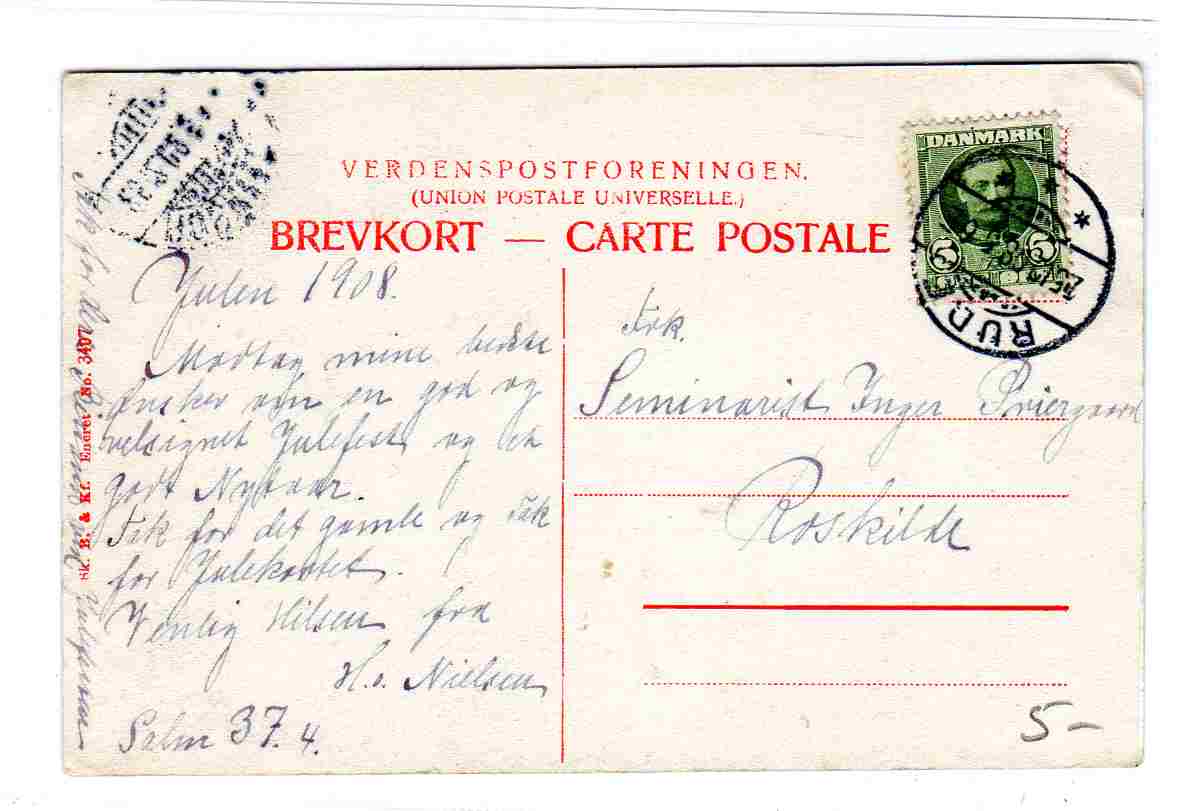 VERDENSPOSTFORENINGEN.
(UNION POSTALE UNIVERSELLE.)
BREVKORT — CARTE POSTALE
DANMARK
5 5
RUD
Julen 1908.
Modtag mine bedste
Ønsker om en god og
velsignet Julefest og et
godt Nytaar.
Tak for det gamle og Tak
for Julekortet.
Venlig Hilsen fra
H. Nielsen
Salm 37.4.
Tak for
Sk. B. & Kf. Eneret No. 3407
Frk.
Seminarist Inger
Roskilde
5-